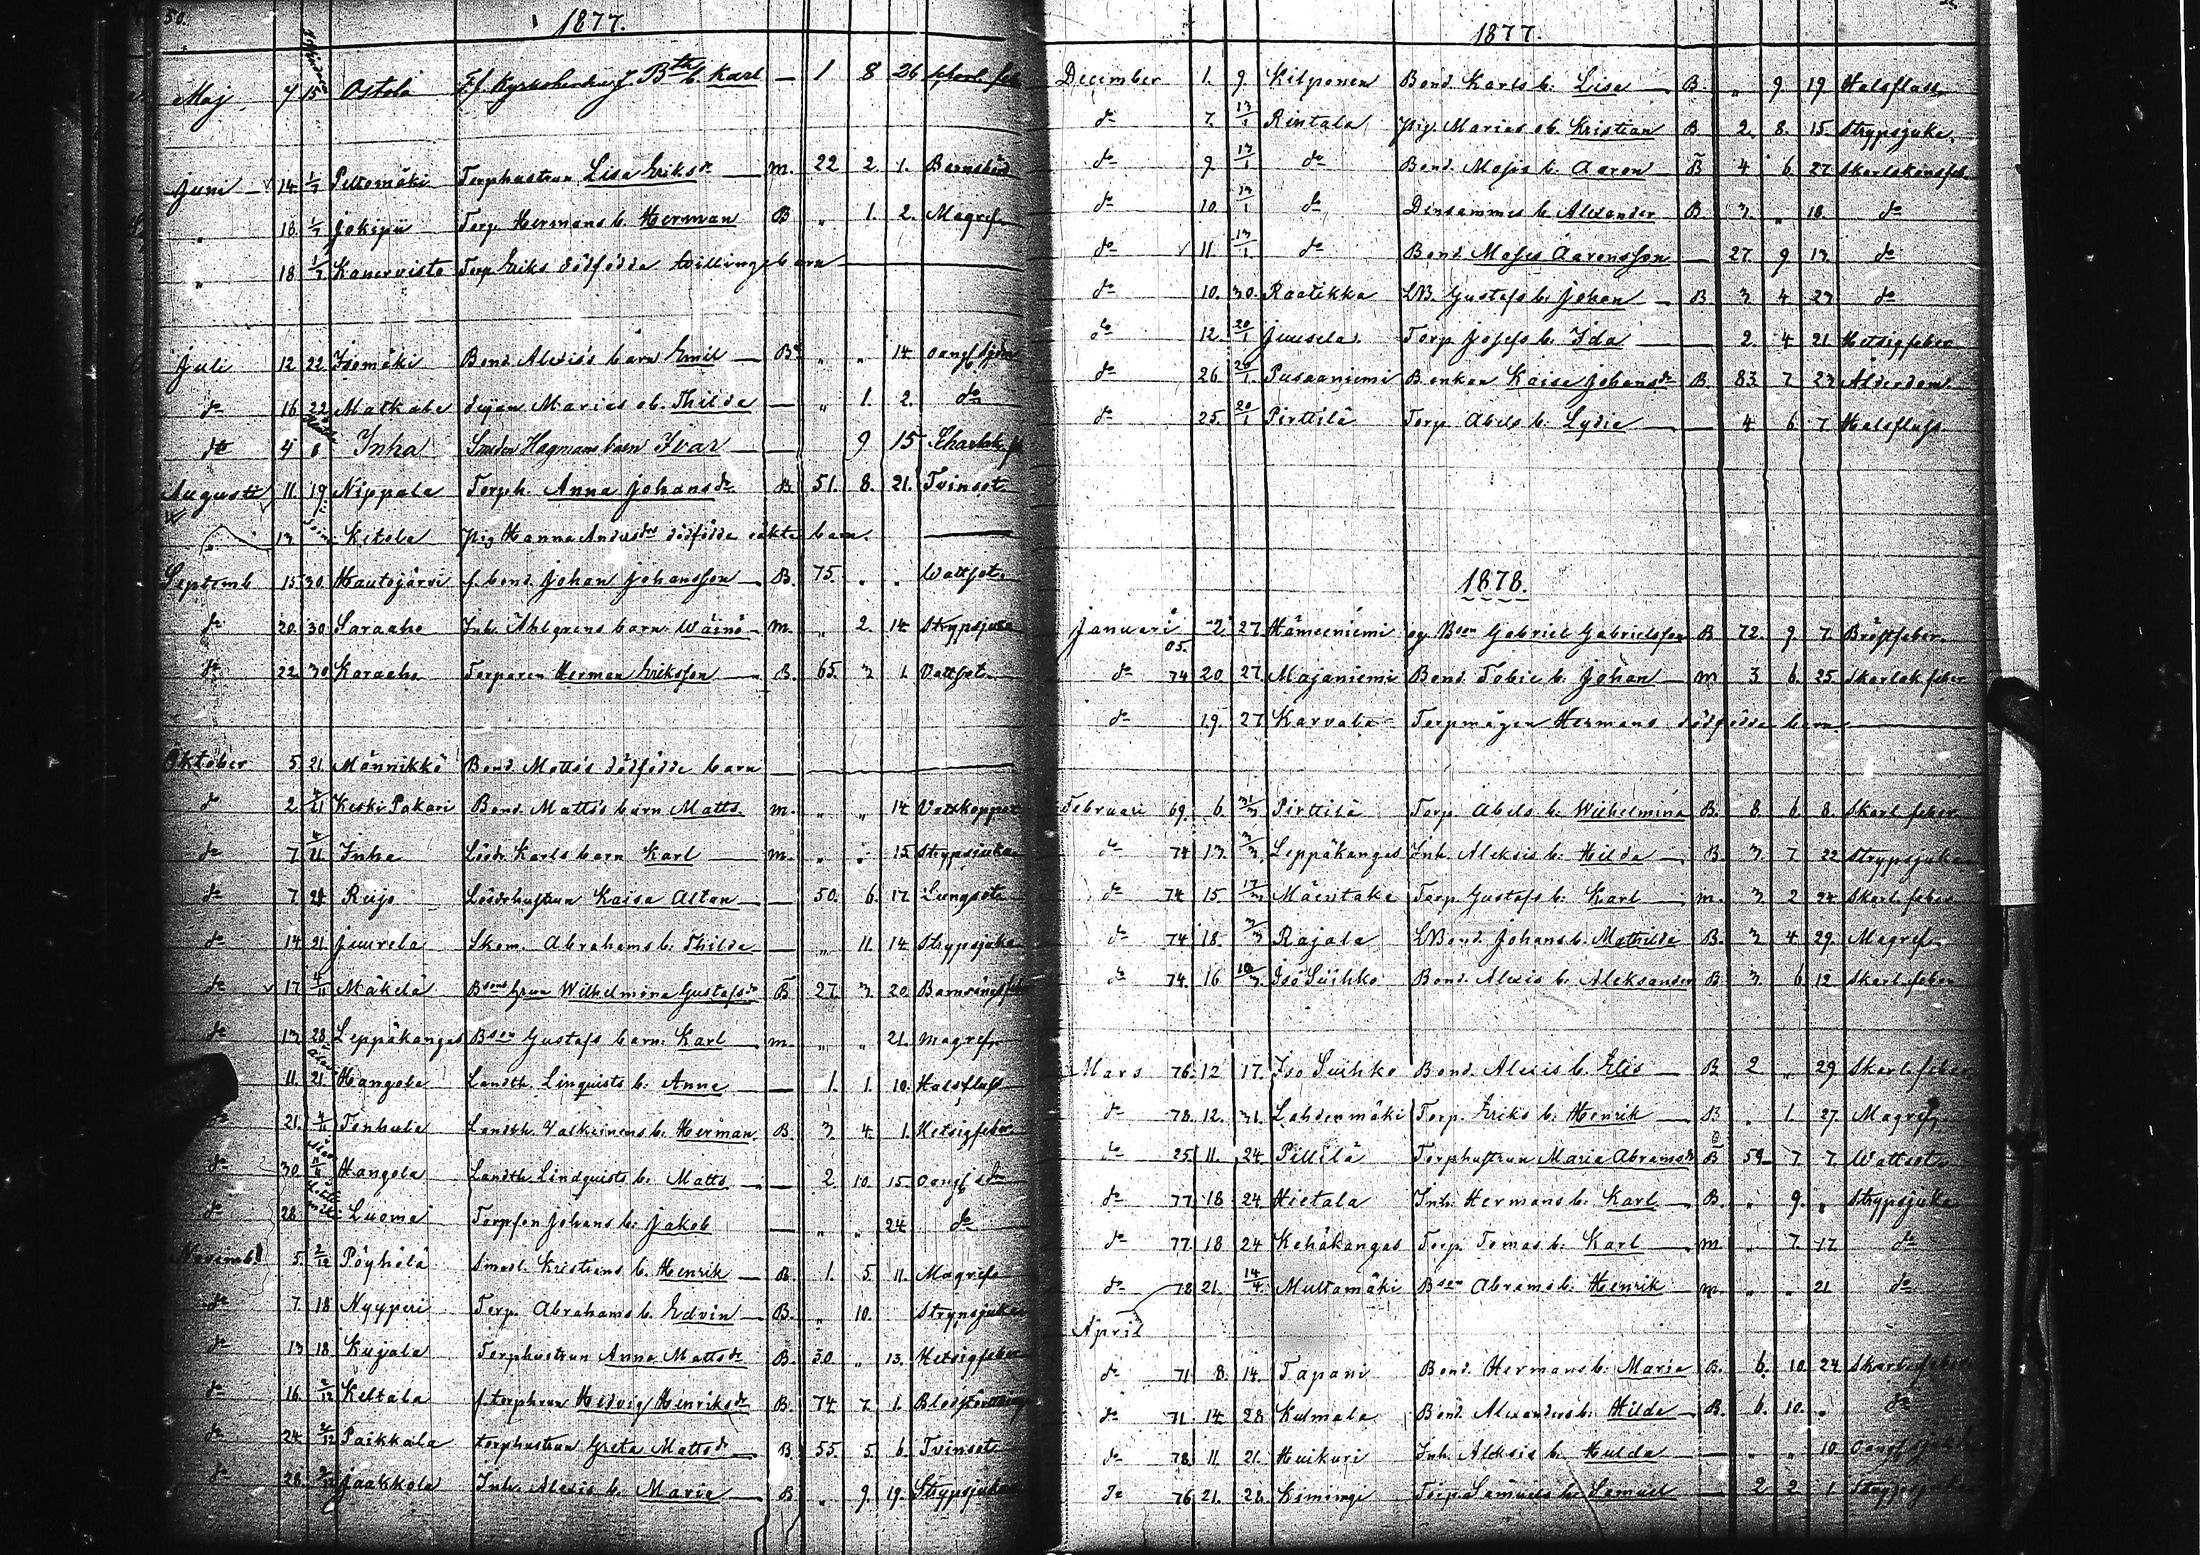 50.
1877.
Maj 7 15 Ostola F.f. Kyrkoherde J. Bths b. Karl — 1 8 26 Sharl. feb
Juni 14 1/7 Peltomäki Torphustrun Lisa Eriksdr — m. 22 2 1. Barnsbörd
" 18 1/7 Jokipii Torp. Hermans b. Herman B " 1. 2. Magref
" 18 1/7 Kanervisto Torp. Eriks dödfödda tvillingebarn
Juli 12 22 Isomäki Bond. Alexis's barn Emil — B. " " 14
do 16 22 Matkala Marias ob. Thilda — " 1. 2. do
do 4 8 Inha Smeden Hagmans barn Ivar — 9 15
Augusti 11. 19 Nippala Torph. Anna Johansdr. B. 51. 8. 21. Tvinsot
" 13 Ketola pig Hanna Andersdr dödfödda oäkta barn.
Septemb 15 30. Hautojärvi f. bond. Johan Johansson B. 75. " " Wattsot.
do 20. 30 Saraaho Inh. Ahlgrens barn Wäinö — m. " 2. 14 Strypsjuka
do 22. 30 Karaaho Torparen Herman Eriksson — B. 65. 3 1. Vattsot.
Oktober 5. 21. Männikkö Bond. Matts's dödfödde barn
do 2. 4/11 Keski Pakari Bond. Matts's barn Matts. m. " " 14 Vattkoppor
do 7 4/11 Inha Lösdr. Karls barn Karl — m. " " 15 Strypsjuka
do 7 21 Reijo Lösdrhustrun Kaisa Altan — 50. 6. 17 Lungsot
do 14. 21 Juurela Skom. Abrahams b. Thilda — " 11. 14 Strypsjuka
do 17 4/11 Mäkelä Bsens hru Wilhelmina Gustafsdr B 27. 3 20
do 13 28 Leppäkangas Bsen Gustafs barn Karl — m. " " 21. Magref
11. 21 Hangola Landth. Linquists b. Anna — 1. 1. 10. Halsfluss
do 21. 4/11 Tenhula Landth. Valkeinens b. Herman. B. 3 4. 1. Hetsigfeber
do 30 Hangola Landth. Lindquists b. Matts — 2. 10. 15
do 28 Luoma Torpson Johans b. Jakob — " " 24 do
Novemb. 5. 2/12 Pöyhölä Smed. Kristians b. Henrik — B. 1. 5. 11. Magref
do 7. 18 Nyyperi Torp. Abrahams b. Edvin — B. " 10. Strypsjuka
do 13 18 Kujala Torphustrun Anna Mattsdr B. 30. " 13. Hetsigfeber
do 16. 2/12 Keltala f. torphrun Hedvig Henriksdr B. 74 7. 1.
do 24. 2/12 Paikkala torphustrun Greta Mattsdr B. 55. 5. 6. Tvinsot
do 28. 2/12 Jaakkola Inh. Alexis b. Maria — B. " 9. 19. Strypsjuka
1877.
December 1. 9. Kilponen Bond. Karls b. Lisa — B. " 9 19 Halsfluss
do 7. 13/1 Rintala pig. Marias ob. Kristian B 2. 8. 15. Strypsjuka.
do 9. 13/1 do Bond. Moses b. Aaron — B 4 6. 27. Skarlakansfeb.
do 10. 13/1 do Densammes b. Alexander B 3. " 18. do
do 11. 13/1 do Bond. Moses Aaronsson — 27. 9 13 do
do 10. 30. Raatikka LB. Gustafs b. Johan — B 3 4 23 do
do 12. 20/1 Juusela. Torp. Josefs b. Ida — 2. 4 21 Hetsigfeber
do 26 20/1 Pusaaniemi Enkan Kaisa Johansdr B. 83. 7 23 Ålderdom.
do 25. 20/1 Pirttilä Torp. Abels b. Lydia — 4 6 7. Halsfluss
1878.
Januari 05. 2. 27. Hämeeniemi Bsen Gabriel Gabrielsson B 72. 9. 7. Bröstfeber.
do 74 20 27. Majaniemi Bond. Tobie b. Johan — m 3 6. 25. Skarlakfeber
do 19. 27 Karvala Torpmågen Hermans dödfödda barn.
Februari 69. 6. 31/3 Pirttilä Torp. Abels b. Wilhelmina B. 8. 6. 8. Skarl. feber
do 74 13. 3/3 Leppäkangas Inh. Aleksis b. Hilda — B. 3. 7 22 Strypsjuka
do 74 15. 17/3 Mäntaka Torp. Gustafs b. Karl — m. 3 2 24 Skarl. feber
do 74 18. 3/3 Rajala LBond. Johans b. Mathilda B. 3 4 29. Magref
do 74. 16 10/3 Iso Suihko Bond. Alexis b. Aleksander B 3 6 12 Skarl. feber
Mars 76. 12 17. Iso Suihko Bond. Alexis b. Elis — B 2 " 29 Skarl. feber
do 78. 12. 31. Lahdenmäki Torp. Eriks b. Henrik — B. " 1. 27. Magref
do 25. 11. 24. Pillilä Torphustrun Maria Abramsdr B 59 7. 7. Wattsot
do 77. 18 24 Hietala Inh. Hermans b. Karl — B. " 9. " Strypsjuka
do 77. 18 24 Kehäkangas Torp. Tomas b. Karl — m " 7. 17 do
do 78 21. 14/4. Multamäki Bsen Abrams b. Henrik — m. " " 21 do
April
do 71 8. 14. Tapani Bond. Hermans b. Maria B. 6. 10. 24 Skarl. feber
do 71. 14 28 Kulmala Bond. Alexanders b. Hilda — B. 6. 10. " do
do 78. 11. 21. Huikuri Inh. Aleksis b. Hulda — " " 10
do 76 21. 28. Kimingi Torp. Samuels b. Samuel — 2 2 1. Strypsjuka